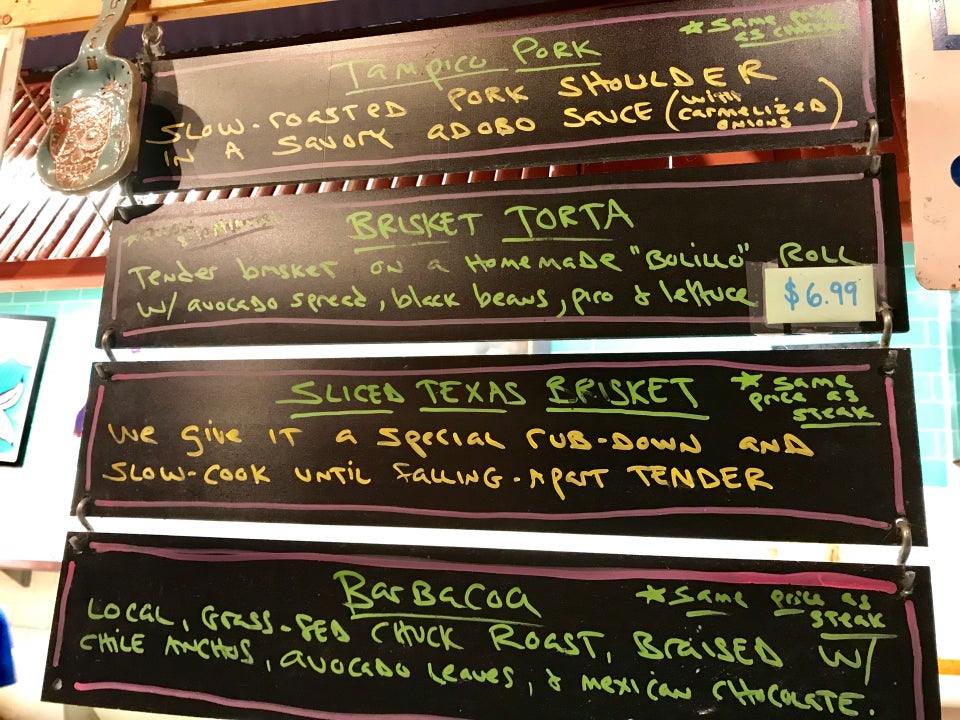 TAMPICO PORK
*Same price
as chicken
SLOW-ROASTED PORK SHOULDER
IN A SAVORY ADOBO SAUCE (WITH
CARMELIZED
ONIONS)
BRISKET TORTA
Tender brisket on a Homemade "BOLILLO" Roll
w/ avocado spread, black beans, pico & lettuce
$6.99
SLICED TEXAS BRISKET
*Same
price as
steak
We give it a special rub-down and
slow-cook until falling-apart TENDER
BarBacoa
*Same price as
steak
LOCAL, GRASS-FED CHUCK ROAST, BRAISED W/
CHILE ANCHOS, avocado leaves, & mexican chocolate.